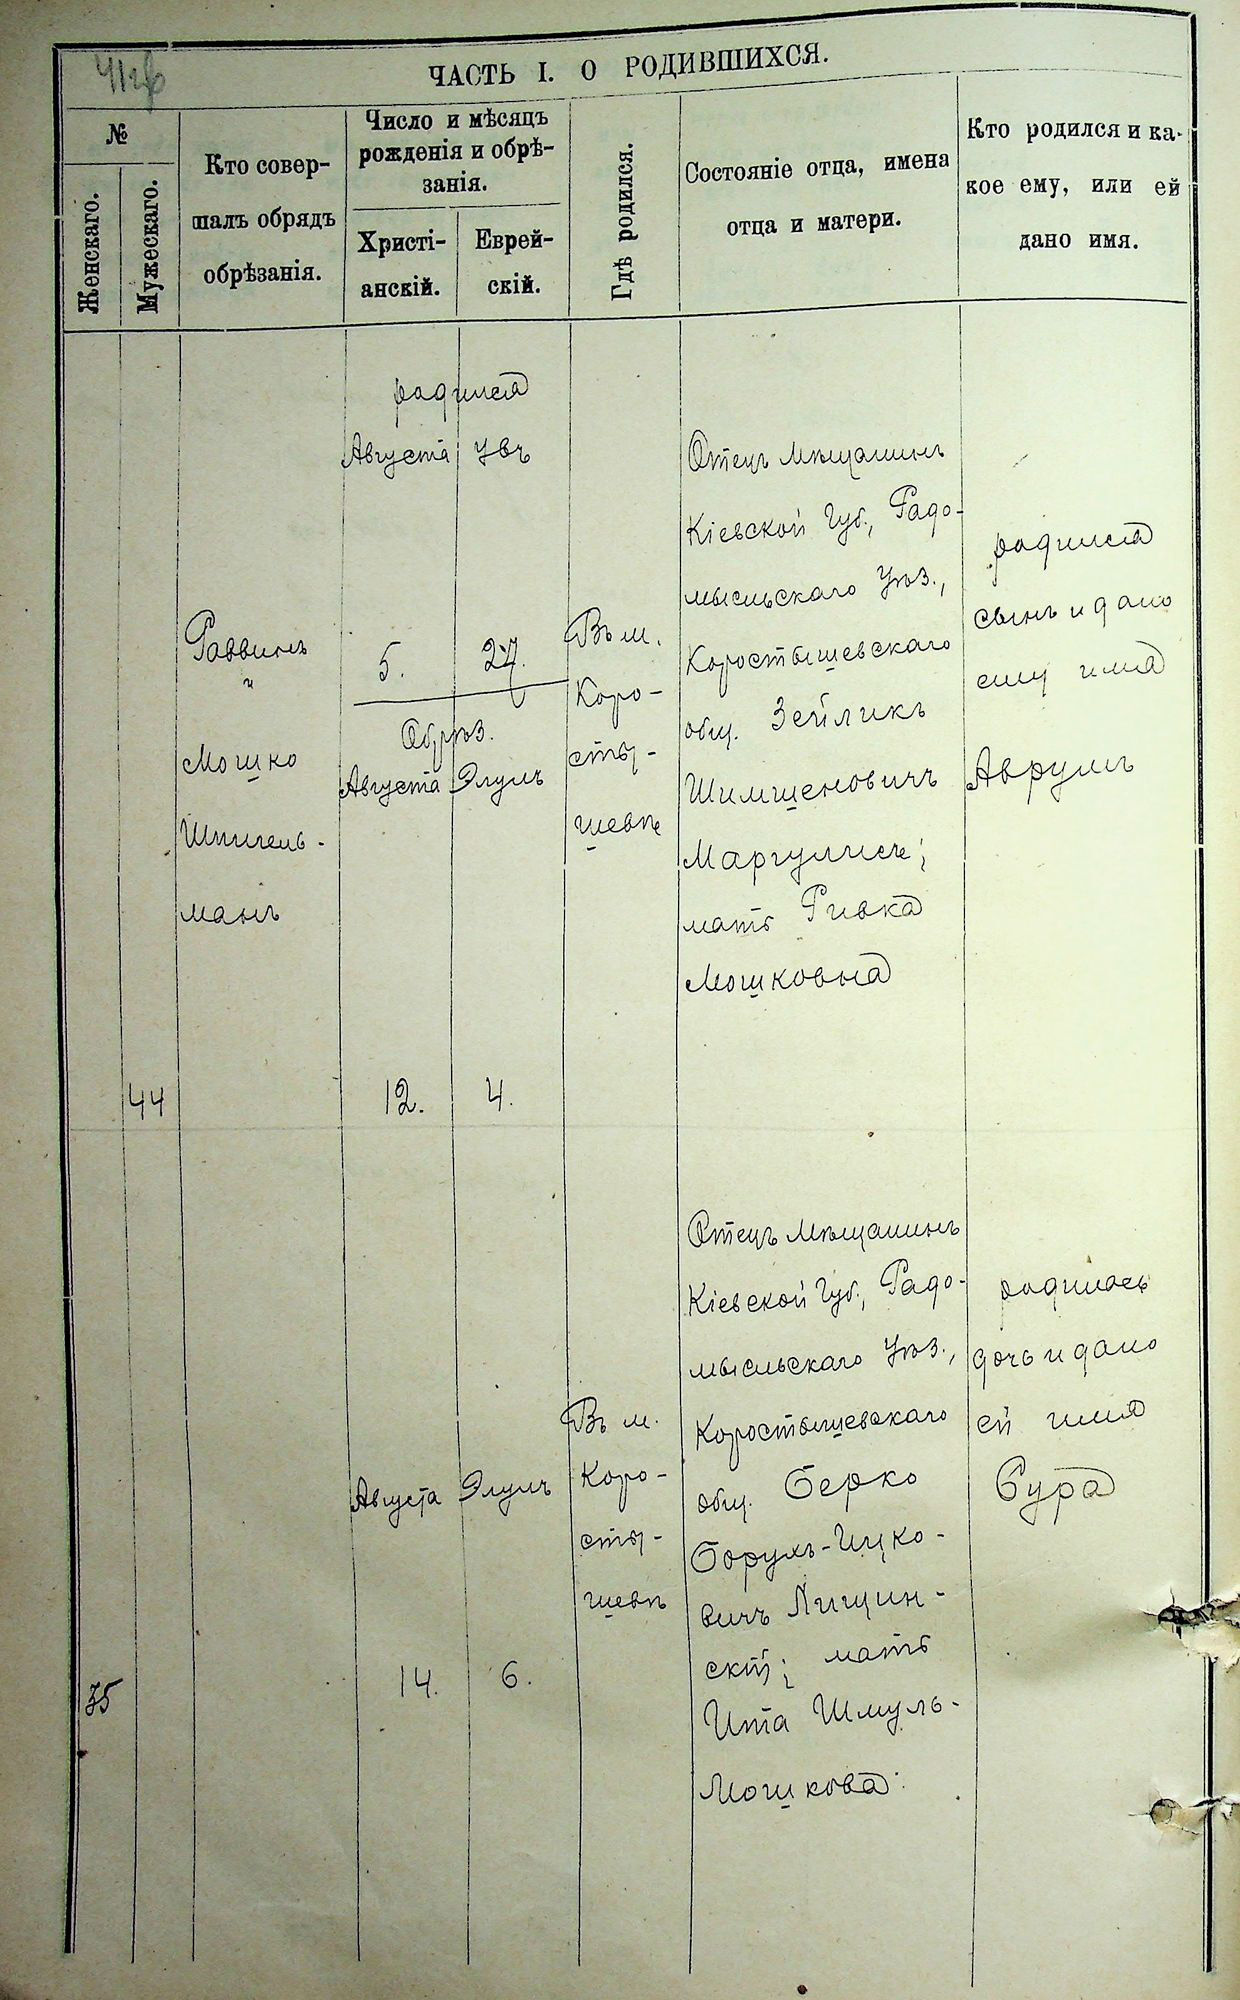 ЧАСТЬ I. О РОДИВШИХСЯ.
№
Женскаго.
Мужескаго.
Кто совер-
шалъ обрядъ
обрѣзанія.
Число и мѣсяцъ
рожденія и обрѣ-
занія.
Христі-
анскій.
Еврей-
скій.
Гдѣ родился.
Состояніе отца, имена
отца и матери.
Кто родился и ка-
кое ему, или ей
дано имя.
44
Раввинъ
и
Мошко
Шпигель-
манъ
родился
Августа
5.
Обрѣз.
Августа Элулъ
12. 4.
27.
Въ м.
Коро-
сты-
шевѣ
Отецъ мѣщанинъ
Кіевской Губ., Радо-
мысльскаго Уѣз.,
Коростышевскаго
общ. Зейликъ
Шимшеновичъ
Маргулисъ;
мать Ривка
Мошковна
родился
сынъ и дано
ему имя
Аврумъ
35
Августа Элулъ
14. 6.
Въ м.
Коро-
сты-
шевѣ
Отецъ мѣщанинъ
Кіевской Губ., Радо-
мысльскаго Уѣз.,
Коростышевскаго
общ. Берко
Борухъ-Ицко-
вичъ Лищин-
скій; мать
Ита Шмуль-
Мошкова
родилась
дочь и дано
ей имя
Сура